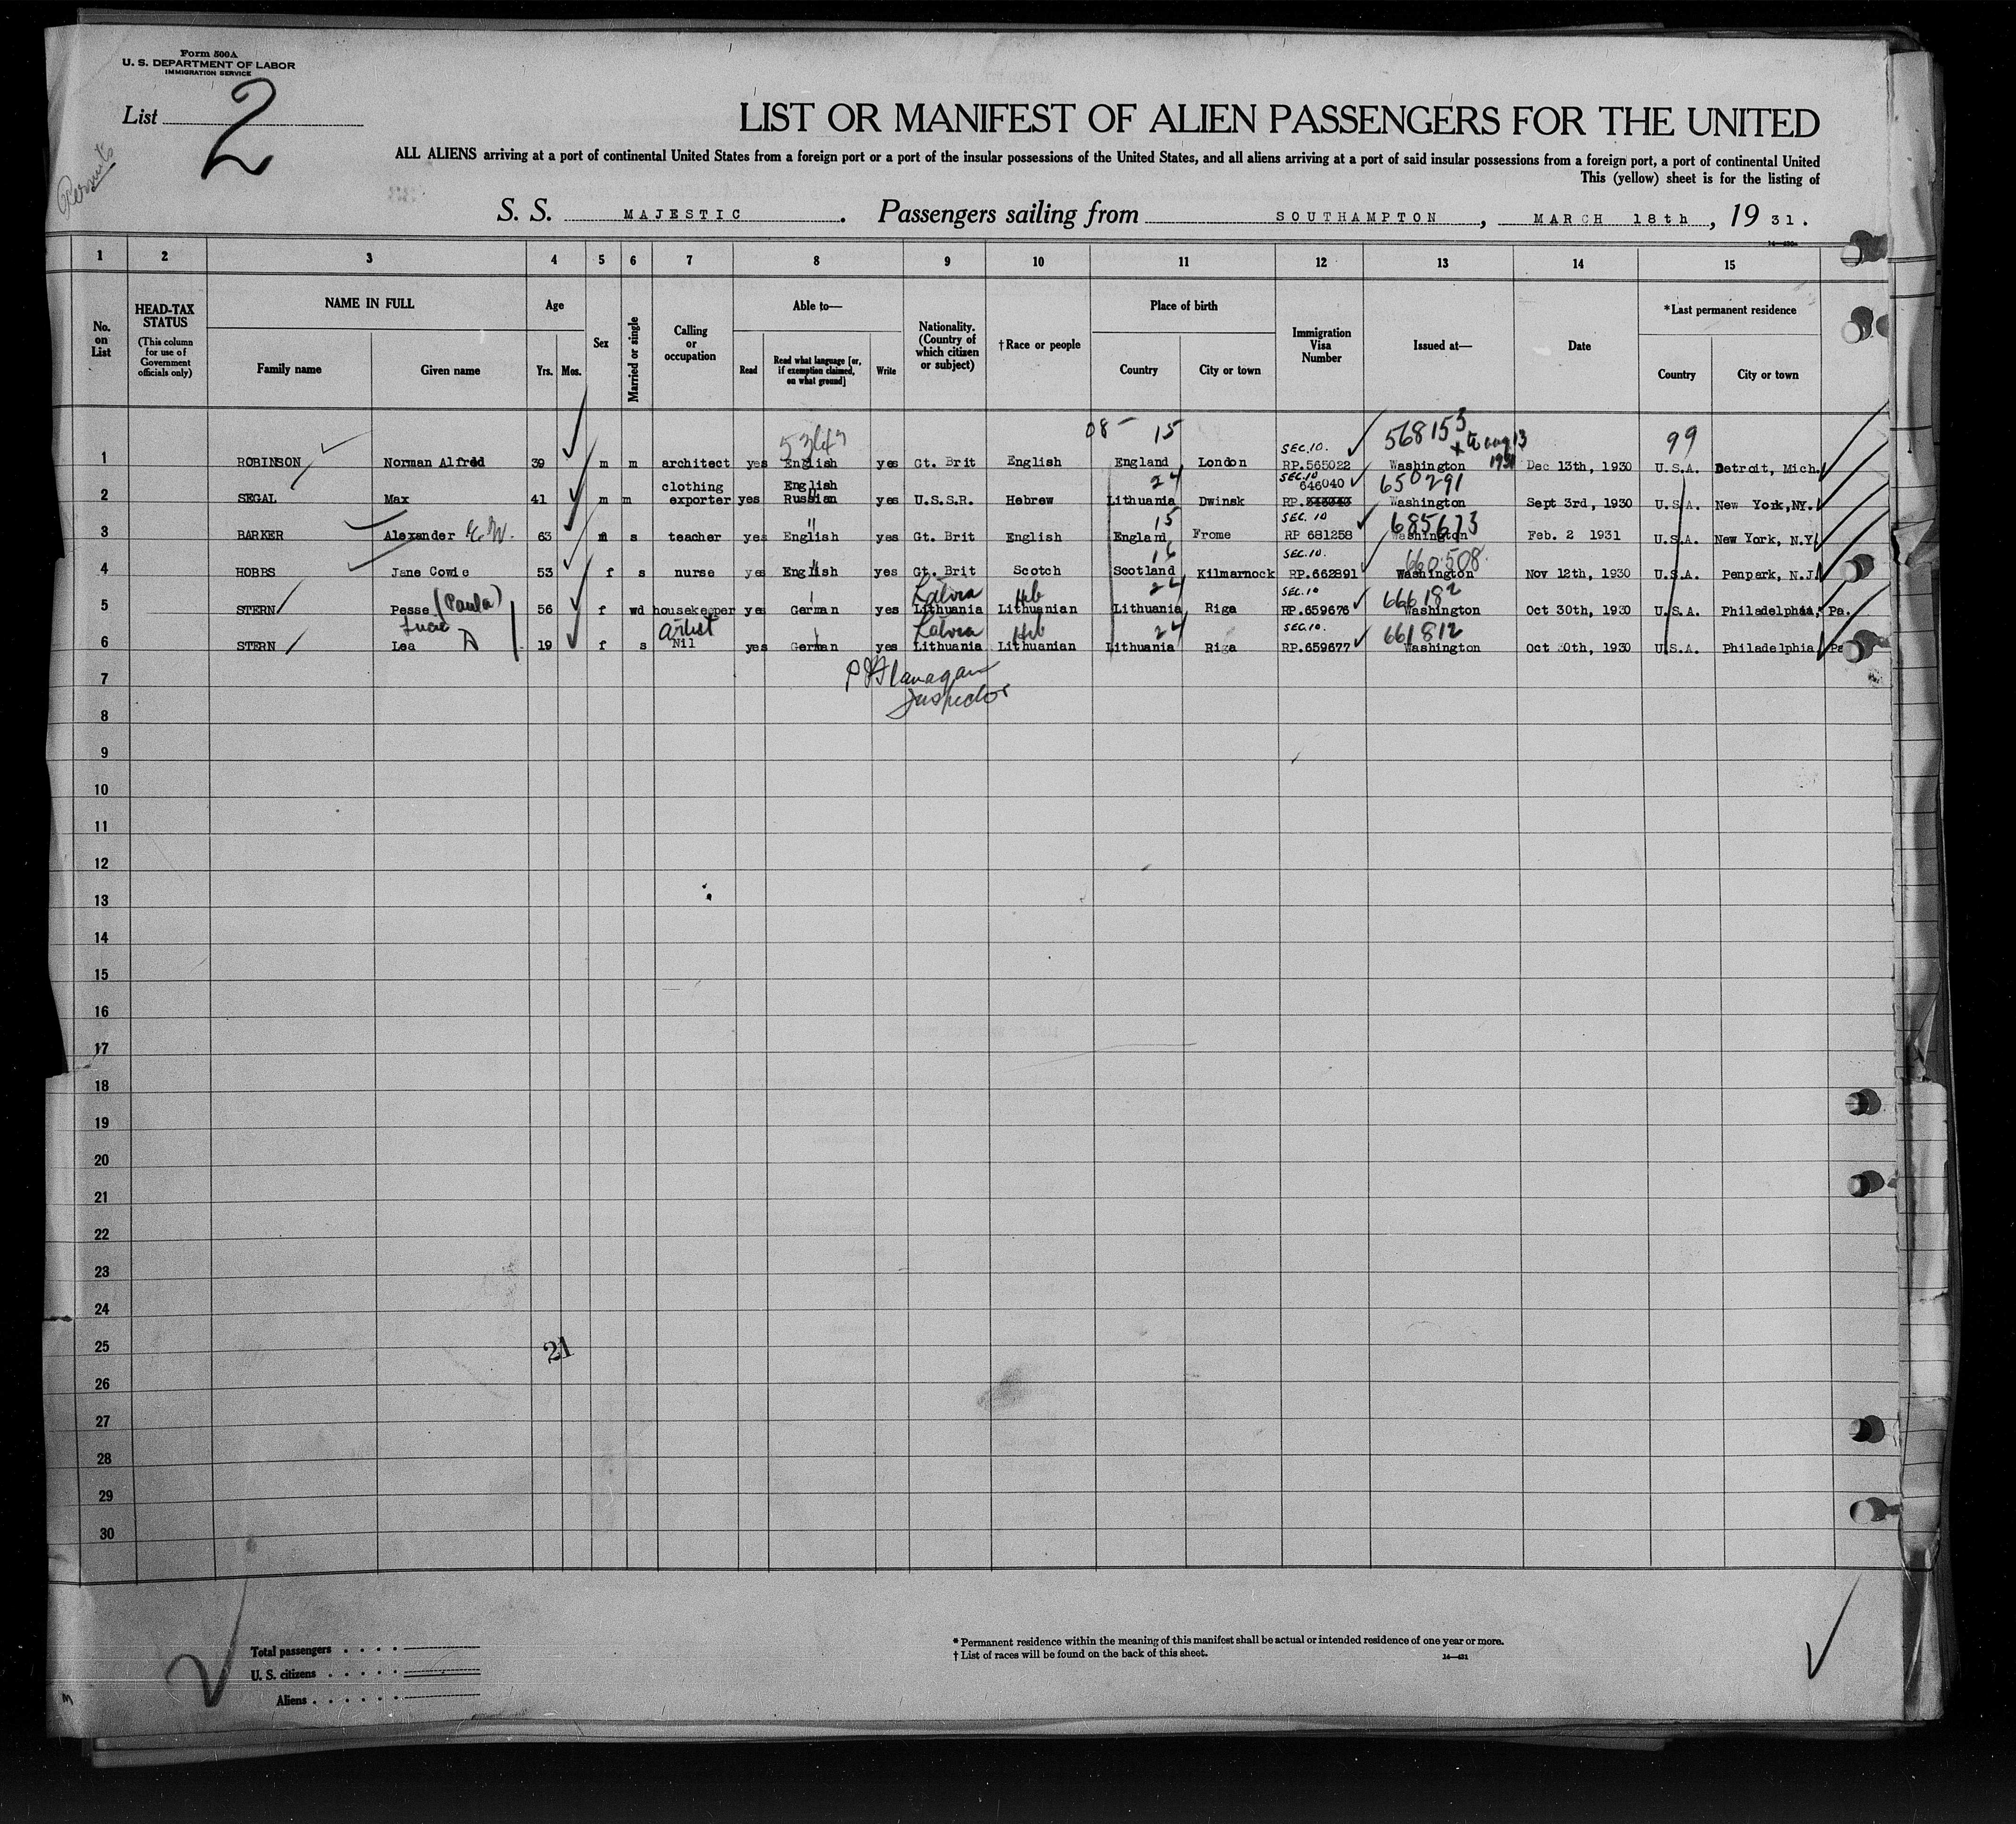 Form 500A
U. S. DEPARTMENT OF LABOR
IMMIGRATION SERVICE
List 2
Permits
LIST OR MANIFEST OF ALIEN PASSENGERS FOR THE UNITED
ALL ALIENS arriving at a port of continental United States from a foreign port or a port of the insular possessions of the United States, and all aliens arriving at a port of said insular possessions from a foreign port, a port of continental United
This (yellow) sheet is for the listing of
S. S. MAJESTIC. Passengers sailing from SOUTHAMPTON, MARCH 18th, 19 31.
1 2 3 4 5 6 7 8 9 10 11 12 13 14 15
No. on List
HEAD-TAX STATUS
(This column for use of Government officials only)
NAME IN FULL
Family name Given name
Age
Yrs. Mos.
Sex
Married or single
Calling or occupation
Able to—
Read Read what language [or, if exemption claimed, on what ground] Write
Nationality. (Country of which citizen or subject)
†Race or people
Place of birth
Country City or town
Immigration Visa Number
Issued at—
Date
*Last permanent residence
Country City or town
08- 15 SEC.10. 568153 99
5364
1 ROBINSON Norman Alfred 39 m m architect yes English yes Gt. Brit English England London RP.565022 Washington 1931 Dec 13th, 1930 U.S.A. Detroit, Mich.
clothing English 24 SEC.10 646040 650291
2 SEGAL Max 41 m m exporter yes Russian yes U.S.S.R. Hebrew Lithuania Dwinsk RP. 646040 Washington Sept 3rd, 1930 U.S.A. New York, NY.
" 15 SEC. 10 685673
3 BARKER Alexander E.W. 63 m s teacher yes English yes Gt. Brit English England Frome RP 681258 Washington Feb. 2 1931 U.S.A. New York, N.Y.
16 SEC.10. 660508
4 HOBBS Jane Cowie 53 f s nurse yes English yes Gt. Brit Scotch Scotland Kilmarnock RP.662891 Washington Nov 12th, 1930 U.S.A. Penpark, N.J.
Latvia Heb 24 SEC.10 666182
5 STERN Pesse (Paula) 56 f wd housekeeper yes German yes Lithuania Lithuanian Lithuania Riga RP.659676 Washington Oct 30th, 1930 U.S.A. Philadelphia, Pa.
Lucie Artist Latvia Heb 24 SEC.10. 661812
6 STERN Lea 19 f s Nil yes German yes Lithuania Lithuanian Lithuania Riga RP.659677 Washington Oct 30th, 1930 U.S.A. Philadelphia Pa
7 P J Flanagan
8 Inspector
9
10
11
12
13
14
15
16
17
18
19
20
21
22
23
24
25 21
26
27
28
29
30
Total passengers
U. S. citizens
Aliens
* Permanent residence within the meaning of this manifest shall be actual or intended residence of one year or more.
† List of races will be found on the back of this sheet.
14—431